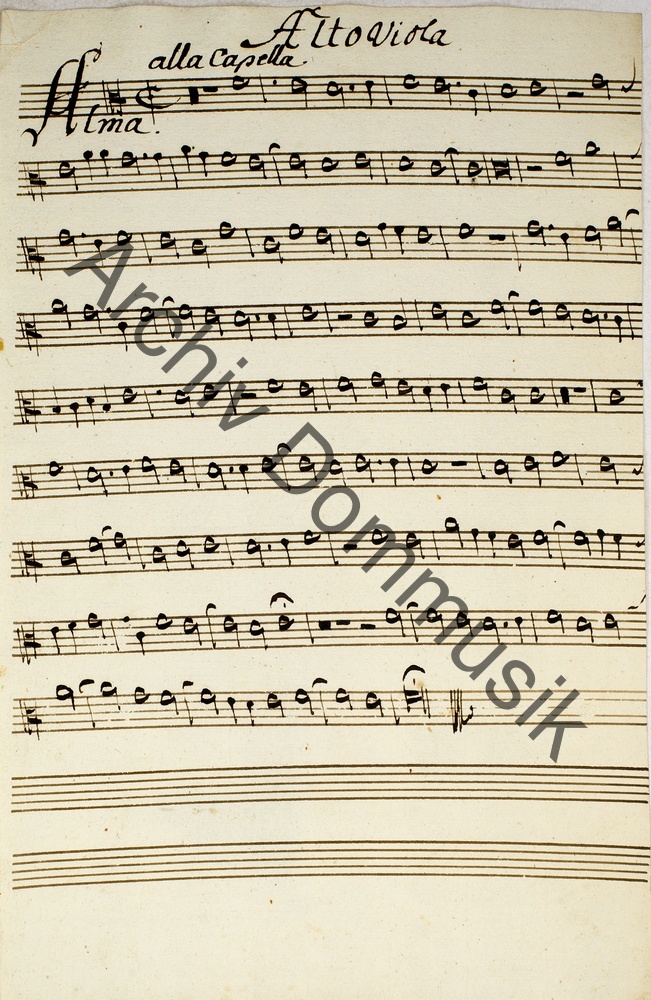 Alto Viola
alla Capella.
Alma.
Archiv Dommusik